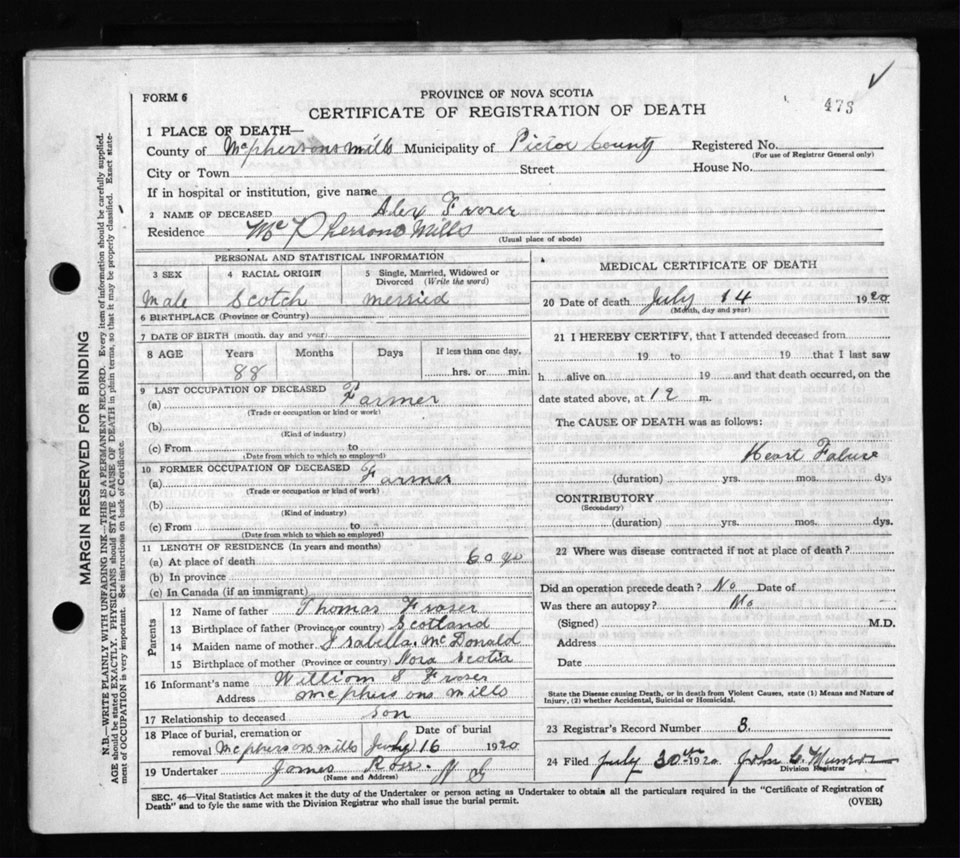 FORM 6
PROVINCE OF NOVA SCOTIA
CERTIFICATE OF REGISTRATION OF DEATH
473
1 PLACE OF DEATH—
County of McPhersons Mills Municipality of Pictou County Registered No.
(For use of Registrar General only)
City or Town Street House No.
If in hospital or institution, give name
2 NAME OF DECEASED Alex Fraser
Residence McPhersons Mills
(Usual place of abode)
PERSONAL AND STATISTICAL INFORMATION
3 SEX 4 RACIAL ORIGIN 5 Single, Married, Widowed or Divorced (Write the word)
Male Scotch merried
6 BIRTHPLACE (Province or Country)
7 DATE OF BIRTH (month, day and year)
8 AGE Years Months Days If less than one day,
88 hrs. or min.
9 LAST OCCUPATION OF DECEASED
(a) Farmer
(Trade or occupation or kind or work)
(b)
(Kind of industry)
(c) From to
(Date from which to which so employed)
10 FORMER OCCUPATION OF DECEASED
(a) Farmer
(Trade or occupation or kind of work)
(b)
(Kind of industry)
(c) From to
(Date from which to which so employed)
11 LENGTH OF RESIDENCE (In years and months)
(a) At place of death 60 yrs
(b) In province
(c) In Canada (if an immigrant)
Parents
12 Name of father Thomas Fraser
13 Birthplace of father (Province or country) Scotland
14 Maiden name of mother Isabella McDonald
15 Birthplace of mother (Province or country) Nova Scotia
16 Informant's name William S Fraser
Address mcphersons mills
17 Relationship to deceased son
18 Place of burial, cremation or Date of burial
removal mcphersons mills July 16 1920
19 Undertaker James Ross. N S
(Name and Address)
MEDICAL CERTIFICATE OF DEATH
20 Date of death July 14 1920
(Month, day and year)
21 I HEREBY CERTIFY, that I attended deceased from
19 to 19 that I last saw
h alive on 19 and that death occurred, on the
date stated above, at 12 m.
The CAUSE OF DEATH was as follows:
Heart Falure
(duration) yrs. mos. dys
CONTRIBUTORY
(Secondary)
(duration) yrs. mos. dys.
22 Where was disease contracted if not at place of death?
Did an operation precede death? No Date of
Was there an autopsy? No
(Signed) M.D.
Address
Date
State the Disease causing Death, or in death from Violent Causes, state (1) Means and Nature of
Injury, (2) whether Accidental, Suicidal or Homicidal.
23 Registrar's Record Number 3.
24 Filed July 30th 1920 John G. Munroe
Division Registrar
SEC. 46—Vital Statistics Act makes it the duty of the Undertaker or person acting as Undertaker to obtain all the particulars required in the "Certificate of Registration of
Death" and to fyle the same with the Division Registrar who shall issue the burial permit.
(OVER)
MARGIN RESERVED FOR BINDING
N.B.—WRITE PLAINLY WITH UNFADING INK—THIS IS A PERMANENT RECORD. Every item of information should be carefully supplied.
AGE should be stated EXACTLY. PHYSICIANS should STATE CAUSE OF DEATH in plain terms, so that it may be properly classified. Exact state-
ment of OCCUPATION is very important. See instructions on back of Certificate.